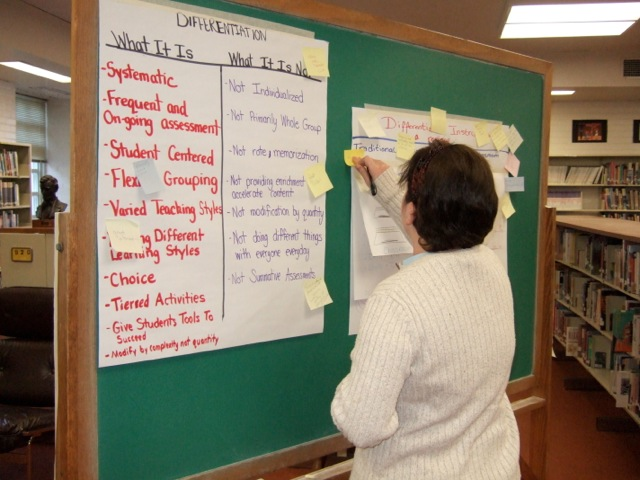 DIFFERENTIATION
What It Is
-Systematic
-Frequent and
On-going assessment
-Student Centered
Grouping
-Varied Teaching Styles
Different
Learning Styles
-Choice
-Tierred Activities
-Give Students Tools To
Succeed
-Modify by complexity not quantity
What It Is
-Not Individualized
-Not Primarily Whole Group
-Not rote, memorization
-Not providing enrichment
accelerate content
-Not modification by quantity
-Not doing different things
with everyone everyday
-Not Summative Assessments
Traditional